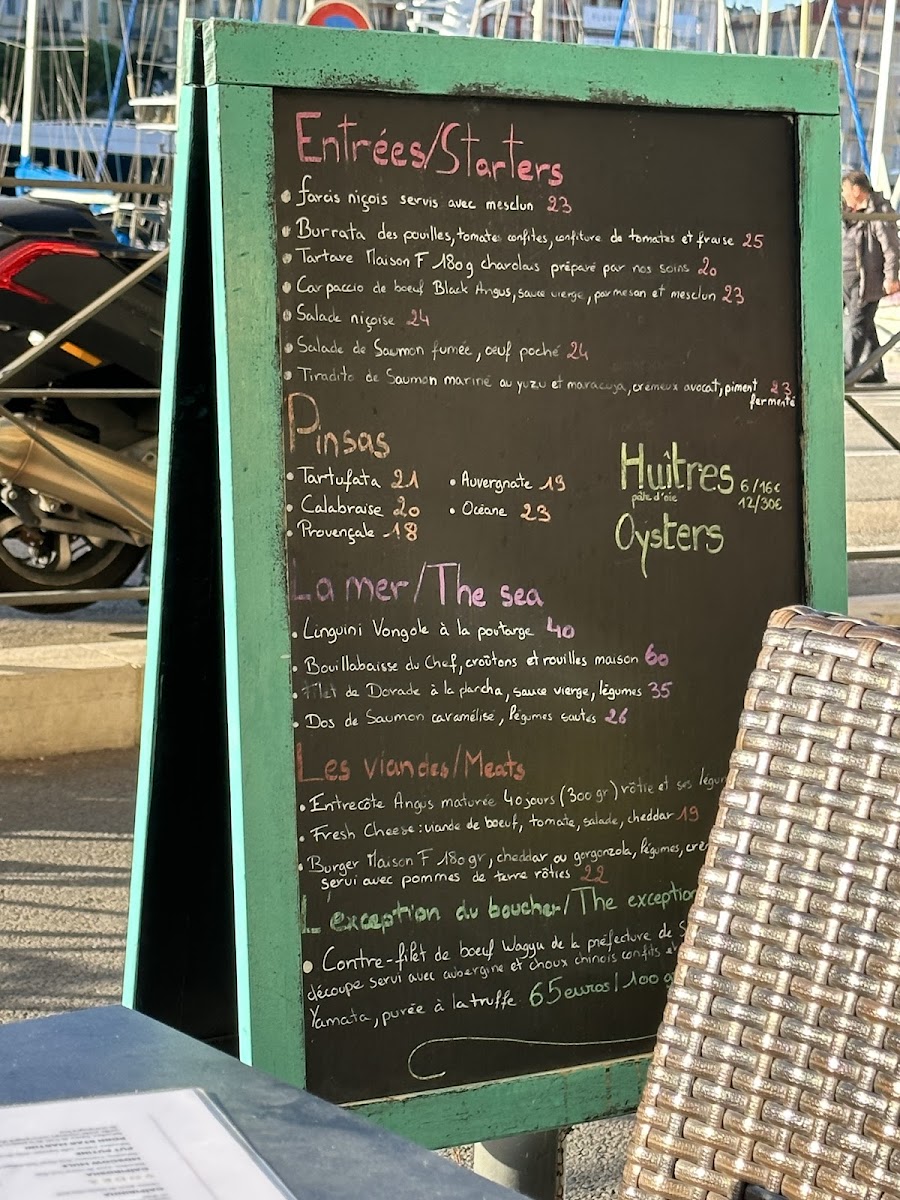 Entrées/Starters
• farcis niçois servis avec mesclun 23
• Burrata des pouilles, tomates confites, confiture de tomates et fraise 25
• Tartare Maison F 180g charolais préparé par nos soins 20
• Carpaccio de boeuf Black Angus, sauce vierge, parmesan et mesclun 23
• Salade niçoise 24
• Salade de Saumon fumée, oeuf poché 24
• Tiradito de Saumon mariné au yuzu et maracuya, crémeux avocat, piment 23
fermenté
Pinsas
• Tartufata 21 • Auvergnate 19
• Calabraise 20 • Océane 23
• Provençale 18
Huîtres 6/16€
pâte d'oie 12/30€
Oysters
La mer/The sea
• Linguini Vongole à la poutarge 40
• Bouillabaisse du Chef, croûtons et rouilles maison 60
• Filet de Dorade à la plancha, sauce vierge, légumes 35
• Dos de Saumon caramélisé, légumes sautés 26
Les viandes/Meats
• Entrecôte Angus maturée 40 jours (300 gr) rôtie et ses légu
• Fresh Cheese: viande de boeuf, tomate, salade, cheddar 19
• Burger Maison F 180gr, cheddar ou gorgonzola, légumes, crè
servi avec pommes de terre rôties 22
L exception du boucher/The exception
• Contre-filet de boeuf Wagyu de la préfecture de S
découpe servi avec aubergine et choux chinois confits et
Yamata, purée à la truffe 65euros/100g